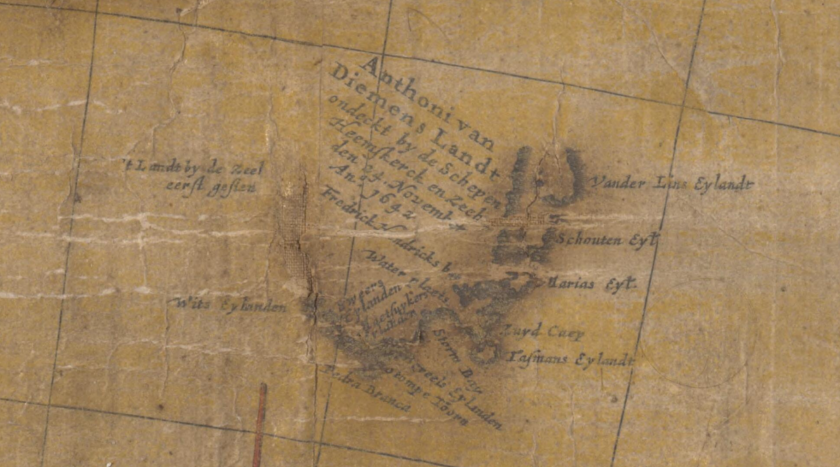 Anthoni van
Diemens Landt
ondeckt by de Schepen
Heemskerck en Zeeh
den 24 Novemb
An. 1642
't Landt by de Zeel
eerst gesien
Vander Lins Eylandt
Schouten Eyl.
Marias Eyl.
Wits Eylanden
Water
Zuyd Caep
Tasmans Eylandt
Storm Baije
Eylanden
Pedra Branca